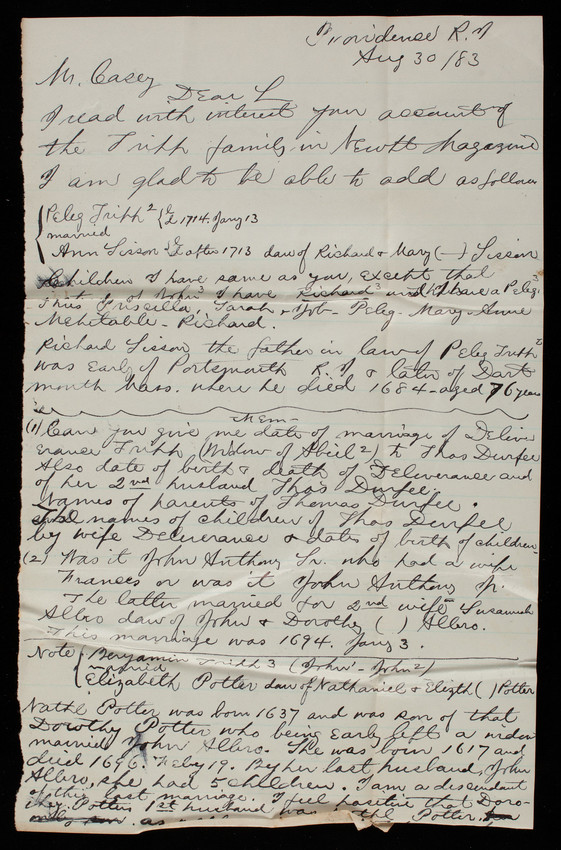 Providence R.I
Aug 30/83
Mr. Casey
Dear Sr
I read with interest your account of
the Tripp family in Newpt Magazine
I am glad to be able to add as follows
Peleg Tripp 2 { b d 1714. Jany 13
married
Ann Sisson { b d after 1713 daw of Richard & Mary ( — ) Sisson
Children I have same as you, except that
of John 3 I have Richard 3 and I have a Peleg 3
thus Priscilla Sarah - Job - Peleg - Mary - Anne
Mehitable - Richard.
Richard Sisson the father in law of Peleg Tripp 2
was Early of Portsmouth R.I & later of Dart
mouth Mass. where he died 1684 - aged 76 years
Mem-
(1) Can you give me date of marriage of Deliv
erance Tripp (Widow of Abiel 2) to Thos Durfee
Also date of birth & death of Deliverance and
of her 2nd husband Thos Durfee.
Names of parents of Thomas Durfee.
And names of children of Thos Durfee
by wife Deliverance & dates of birth of children
(2) Was it John Anthony Sr. who had a wife
Frances or was it John Anthony Jr.
The latter married for 2nd wife Susannah
Albro daw of John & Dorothy ( ) Albro.
This marriage was 1694. Jany 3.
Note { Benjamin Tripp 3 (John 1 - John 2)
married
Elizabeth Potter daw of Nathaniel & Elizth ( ) Potter
Nathl Potter was born 1637 and was son of that
Dorothy Potter who being early left a widow
married John Albro. She was born 1617 and
died 1696. Feby 19. By her last husband, John
Albro, she had 5 children. I am a descendant
of this last marriage. I feel positive that Doro-
thy Potter 1st husband was Nathl Potter.
as